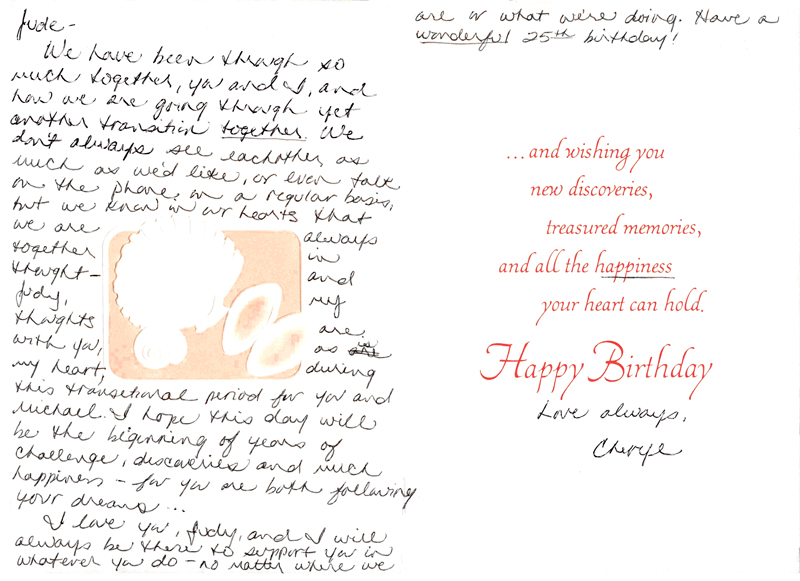 Jude-
We have been through so
much together, you and I, and
now we are going through yet
another transition together. We
don't always see eachother as
much as we'd like, or even talk
on the phone on a regular basis,
but we know in our hearts that
we are always
together in
thought- and
Judy, my
thoughts are,
with you, as is
my heart, during
this transitional period for you and
Michael. I hope this day will
be the beginning of years of
challenge, discoveries and much
happiness - for you are both following
your dreams...
I love you, Judy, and I will
always be there to support you in
whatever you do - no matter where we
are or what we're doing. Have a
wonderful 25th birthday!
...and wishing you
new discoveries,
treasured memories,
and all the happiness
your heart can hold.
Happy Birthday
Love always,
Cheryl